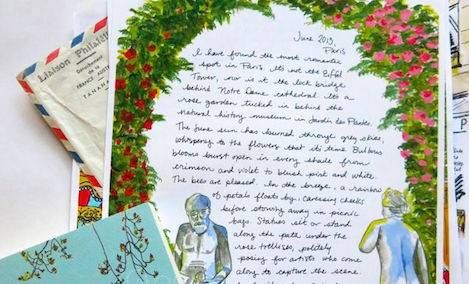 Liaison Philat
de la
FRANCE AUSTR
TANANA
June 2013,
Paris
I have found the most romantic
spot in Paris. Its not the Eiffel
Tower, nor is it the lock bridge
behind Notre Dame cathedral. Its a
rose garden tucked in behind the
natural history museum in Jardin des Plantes.
The June sun has burned through grey skies,
whispering to the flowers that its time. Bulbous
blooms burst open in every shade from
crimson and violet to blush pink and white.
The bees are pleased. In the breeze, a rainbow
of petals floats by, caressing cheeks
before stowing away in picnic
bags. Statues sit or stand
along the path under the
rose trellises, politely
posing for artists who come
along to capture the scene.